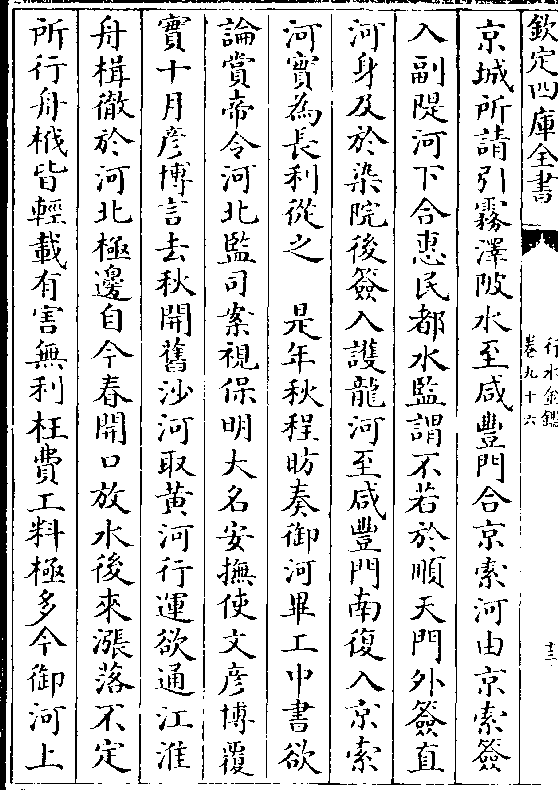 欽定四庫全書
行水金鑑
卷九十六
十三
京城所請引霧澤陂水至咸豐門合京索河由京索簽
入副隄河下合惠民都水監謂不若於順天門外簽直
河身及於染院後簽入護龍河至咸豐門南復入京索
河實為長利從之　是年秋程昉奏御河畢工中書欲
論賞帝令河北監司案視保明大名安撫使文彦博覆
實十月彦博言去秋開舊沙河取黄河行運欲通江淮
舟楫徹於河北極邊自今春開口放水後來漲落不定
所行舟栰皆輕載有害無利枉費工料極多今御河上